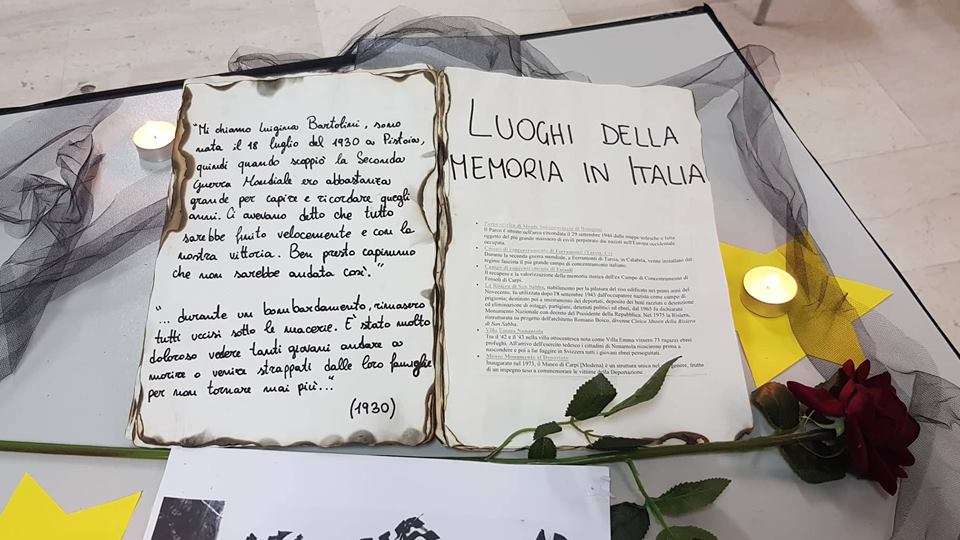 "Mi chiamo Luigina Bartolini, sono
nata il 18 luglio del 1930 a Pistoia,
quindi quando scoppiò la Seconda
Guerra Mondiale ero abbastanza
grande per capire e ricordare quegli
anni. Ci avevano detto che tutto
sarebbe finito velocemente e con la
nostra vittoria. Ben presto capimmo
che non sarebbe andata così."
"... durante un bombardamento, rimasero
tutti uccisi sotto le macerie. E' stato molto
doloroso vedere tanti giovani andare a
morire o venire strappati dalle loro famiglie
per non tornare mai più..."
(1930)
LUOGHI DELLA
MEMORIA IN ITALIA
Il Parco è situato nell'area circondata il 29 settembre 1944 dalle truppe tedesche e fatta
oggetto del più grande massacro di civili perpetrato dai nazisti nell'Europa occidentale
occupata.
Campo di concentramento di Ferramonti (Tarsia, Cs)
Durante la seconda guerra mondiale, a Ferramonti di Tarsia, in Calabria, venne installato dal
regime fascista il più grande campo di concentramento italiano.
Campo di concentramento di Fossoli
Il recupero e la valorizzazione della memoria storica dell'ex Campo di Concentramento di
Fossoli di Carpi.
La Risiera di San Sabba, stabilimento per la pilatura del riso edificato nei primi anni del
Novecento, fu utilizzata dopo l'8 settembre 1943 dall'occupatore nazista come campo di
prigionia; destinato poi a smistamento dei deportati, deposito dei beni razziati e detenzione
ed eliminazione di ostaggi, partigiani, detenuti politici ed ebrei, dal 1965 fu dichiarato
Monumento Nazionale con decreto del Presidente della Repubblica. Nel 1975 la Risiera,
ristrutturata su progetto dell'architetto Romano Boico, divenne Civico Museo della Risiera
di San Sabba.
Villa Emma Nonantola
Tra il '42 e il '43 nella villa ottocentesca nota come Villa Emma vissero 73 ragazzi ebrei
profughi. All'arrivo dell'esercito tedesco i cittadini di Nonantola riuscirono prima a
nascondere e poi a far fuggire in Svizzera tutti i giovani ebrei perseguitati.
Museo Monumento al Deportato
Inaugurato nel 1973, il Museo di Carpi [Modena] è un struttura unica nel genere, frutto
di un impegno teso a commemorare le vittime della Deportazione